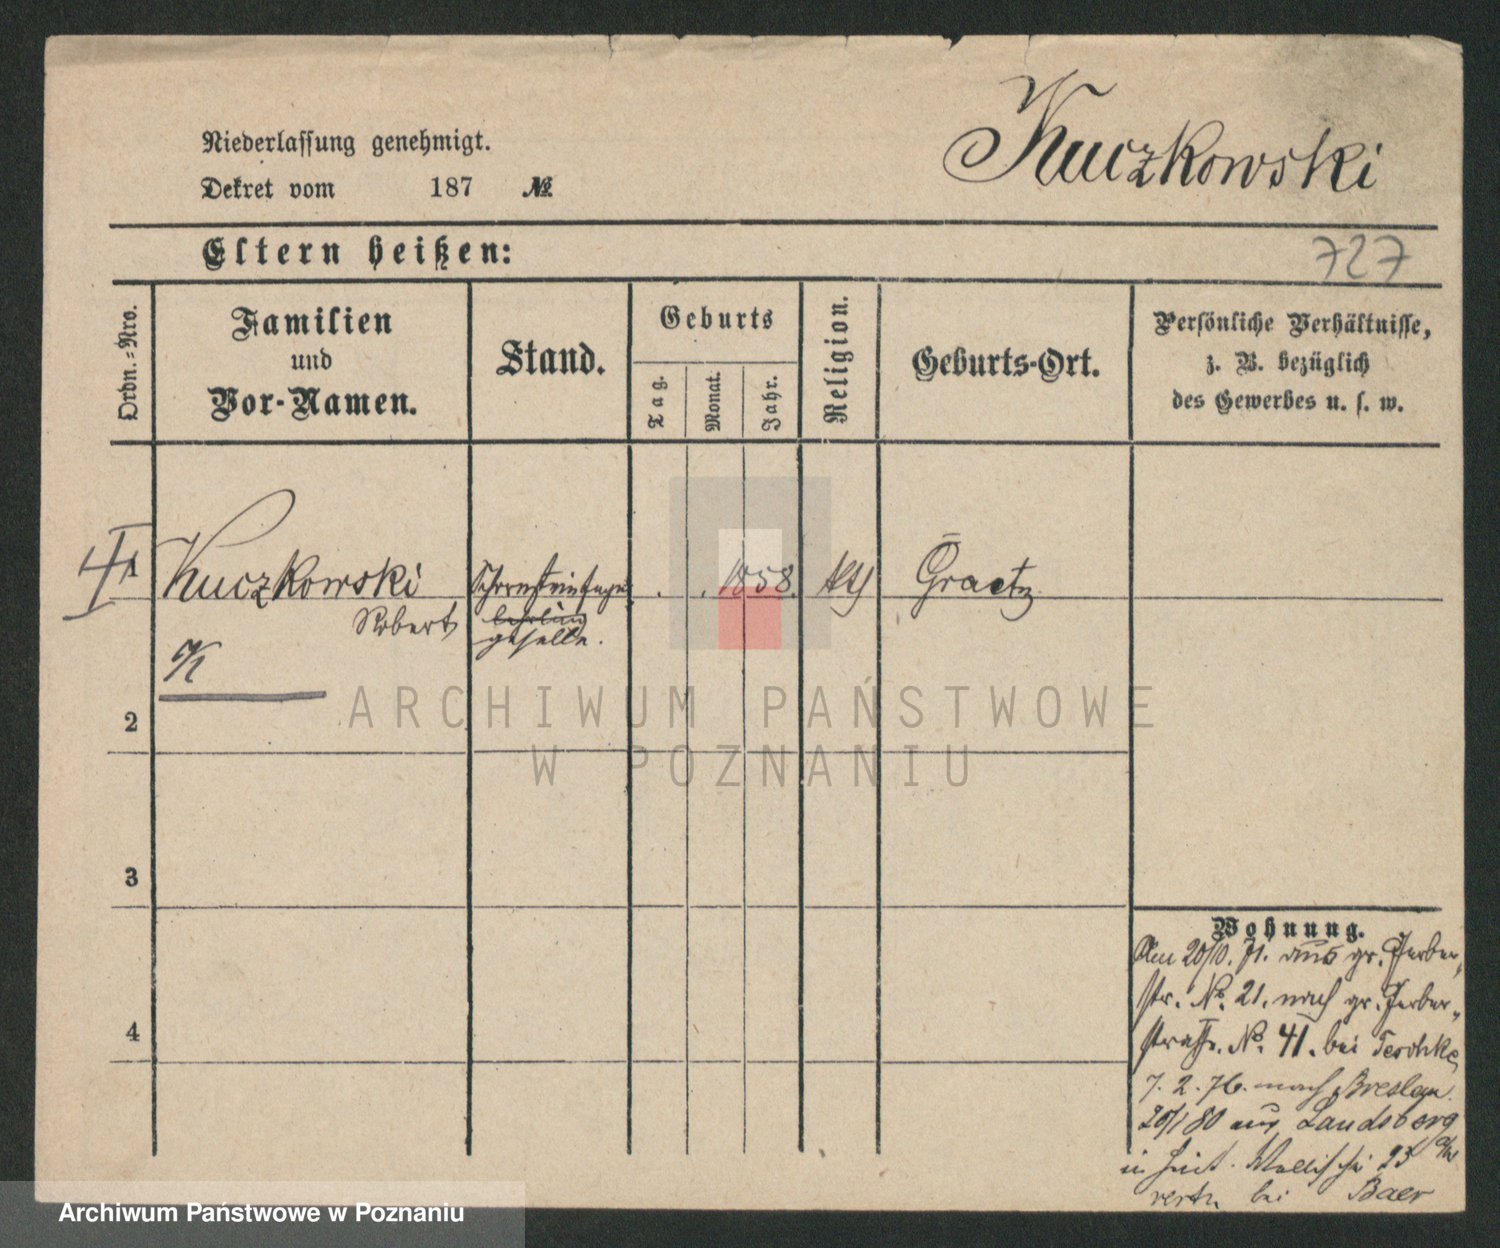 Kuczkowski
Niederlassung genehmigt.
Dekret vom 187 №
Eltern heißen:
727
Ordn.-Nro.
Familien
und
Vor-Namen.
Stand.
Geburts
Tag.
Monat.
Jahr.
Religion.
Geburts-Ort.
Persönliche Verhältnisse,
z. B. bezüglich
des Gewerbes u. s. w.
1
Kuczkowski
Robert
Schornsteinfeger
lehrling
geselle.
1858.
kth
Graetz
2
3
4
ARCHIWUM PAŃSTWOWE
W POZNANIU
Wohnung.
Am 20/10. 71. aus gr. Gerber-
str. No. 21. nach gr. Gerber-
straße. No. 41. bei Teschke
7. 2. 76. nach Breslau.
20/1 80 aus Landsberg
a/W
23
bei Baer
Archiwum Państwowe w Poznaniu